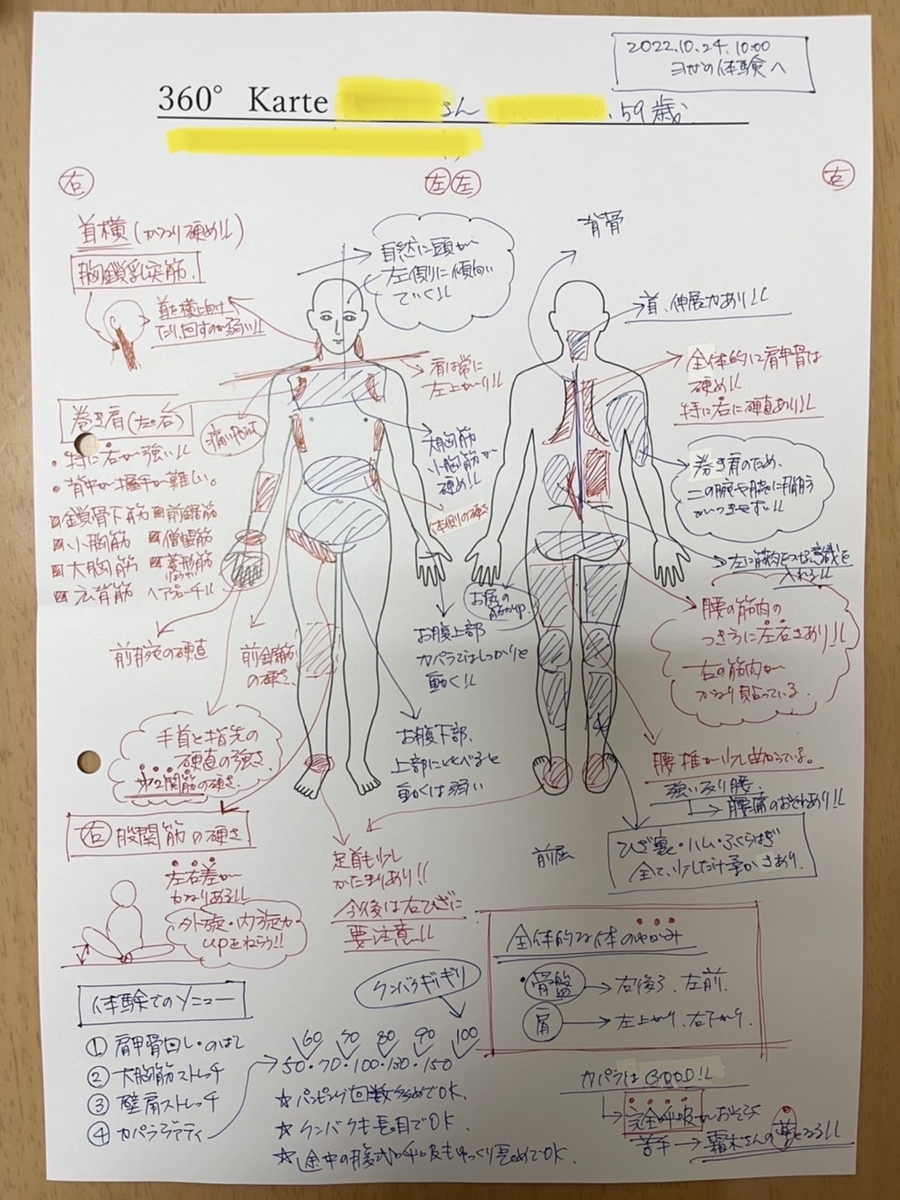 2022.10.24.10:00
ヨガの体験へ
360° Karte
さん
59歳
右
左
左
右
首横(かなり硬め!!)
胸鎖乳突筋
首を横に向け
たり、回すのが弱い!!
自然に頭が
左側に傾い
ていく!!
背骨
首、伸展力あり!!
肩は常に
左上がり!!
全体的に肩甲骨は
硬め!!
特に右に硬直あり!!
巻き肩(左<右)
・特に右が強い!!
・背中が握手が難しい。
鎖骨下筋 前鋸筋
小胸筋 僧帽筋
大胸筋 菱形筋
広背筋 へアプローチ!!
大胸筋
小胸筋が
硬め!!
体側の硬さ
巻き肩のため、
二の腕や脇に脂肪
がつきやすい!!
左に筋肉をつける意識を
入れる!!
お尻の
お腹上部
カパラではしっかりと
動く!!
腰の筋肉の
つき方に左右さあり!!
右の筋肉が
かなり貼っている。
前腕の硬直
の硬さ
手首と指先の
硬直の強さ
第2関節の硬さ
お腹下部、
上部にくらべると
動くは弱い
腰椎が少し曲がっている。
強い反り腰、
腰痛のおそれあり!!
右 股関節の硬さ
左右差が
かなりある!!
外旋・内旋力
upをねらう!!
足首も少し
かたまりあり!!
今後は右ひざに
要注意!!
前屈
ひざ裏・ハム・ふくらはぎ
全て、少しだけ柔かさあり。
全体的な体のゆがみ
・骨盤→右後ろ、左前。
肩→左上がり、右下がり。
体験でのメニュー
① 肩甲骨回し・のばし
② 大胸筋ストレッチ
③ 壁肩ストレッチ
④ カパラバァティ
クンバクギリギリ
60 70 80 90 100
50・70・100・130・150
☆パンピング回数多めでOK。
☆クンバクも長目でOK。
☆途中の腹式の呼吸もゆっくり長めでOK。
カパラはGOOD!!
完全呼吸がおそらく
苦手→霜木さんの